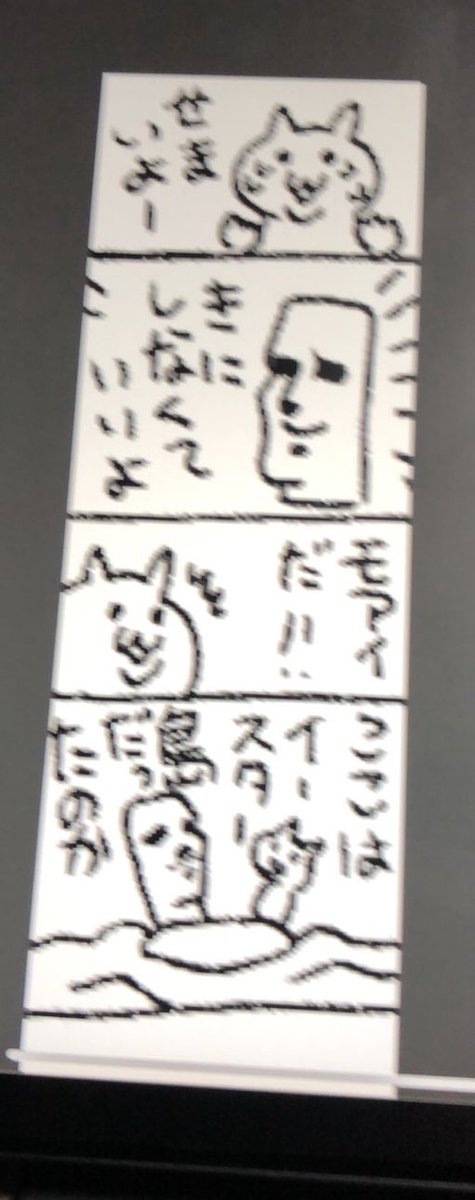 せま
いよー
きに
しなくて
いいよ
モアイ
だ!!
ここは
イー
スター
島
だっ
たのか